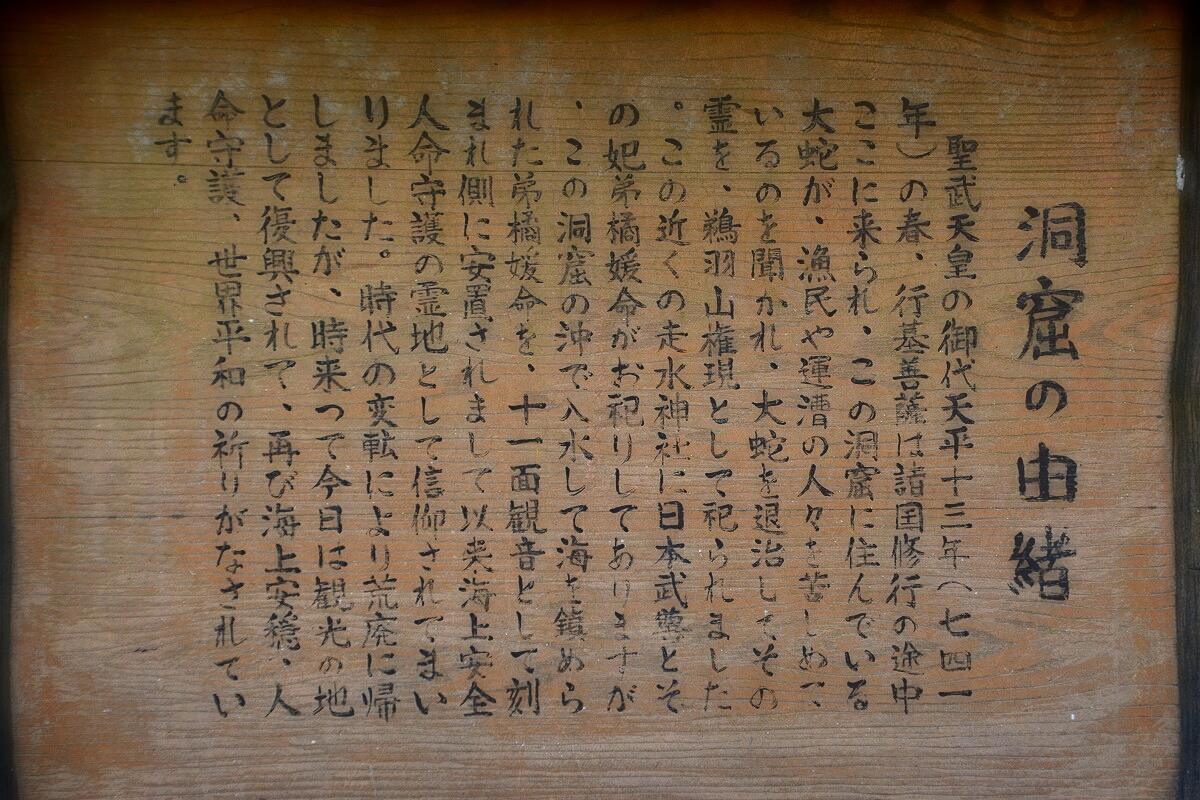 洞窟の由緒
聖武天皇の御代天平十三年（七四一
年）の春、行基菩薩は諸国修行の途中
ここに来られ、この洞窟に住んでいる
大蛇が、漁民や運漕の人々を苦しめて
いるのを聞かれ、大蛇を退治してその
霊を、鵜羽山権現として祀られました
。この近くの走水神社に日本武尊とそ
の妃弟橘媛命がお祀りしてありますが
、この洞窟の沖で入水して海を鎮めら
れた弟橘媛命を、十一面観音として刻
まれ側に安置されまして以来海上安全
人命守護の霊地として信仰されてまい
りました。時代の変転により荒廃に帰
しましたが、時来って今日は観光の地
として復興されて、再び海上安穏、人
命守護、世界平和の祈りがなされてい
ます。